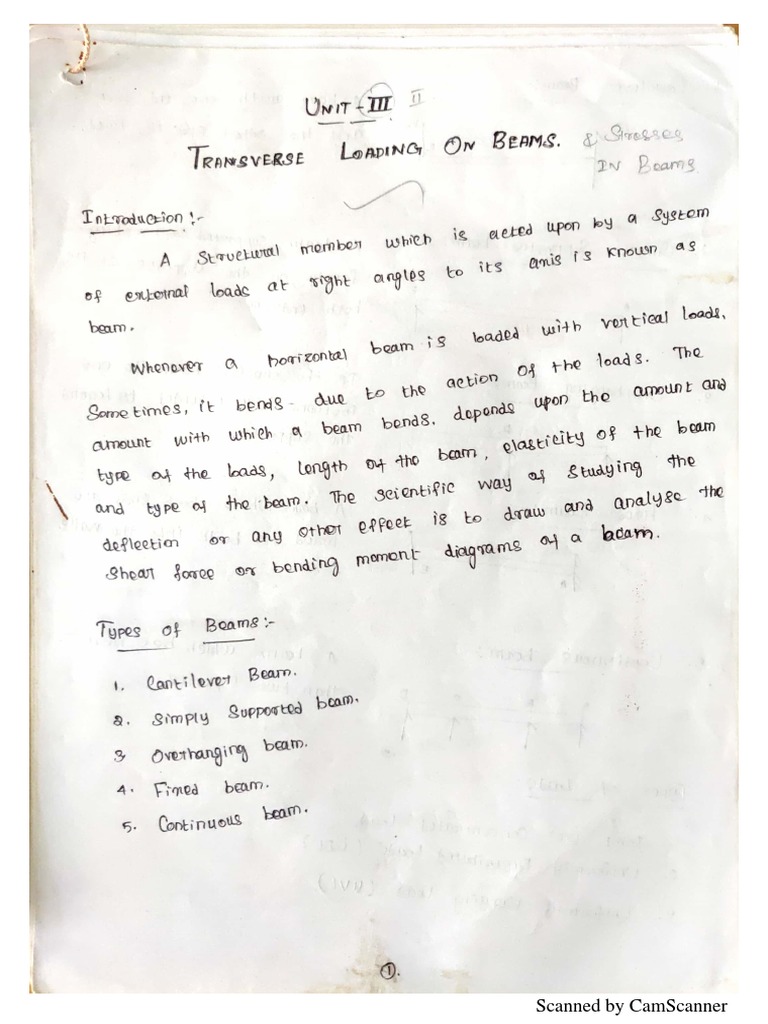 UNIT - III II
TRANSVERSE LOADING ON BEAMS. & Stresses
IN Beams
Introduction :-
A structural member which is acted upon by a system
of external loads at right angles to its axis is known as
beam.
Whenever a horizontal beam is loaded with vertical loads,
Sometimes, it bends due to the action of the loads. The
amount with which a beam bends, depends upon the amount and
type of the loads, length of the beam, elasticity of the beam
and type of the beam. The scientific way of studying the
deflection or any other effect is to draw and analyse the
Shear force or bending moment diagrams of a beam.
Types of Beams :-
1. Cantilever Beam.
2. Simply Supported beam.
3 Overhanging beam.
4. Fixed beam.
5. Continuous beam.
1.
Scanned by CamScanner